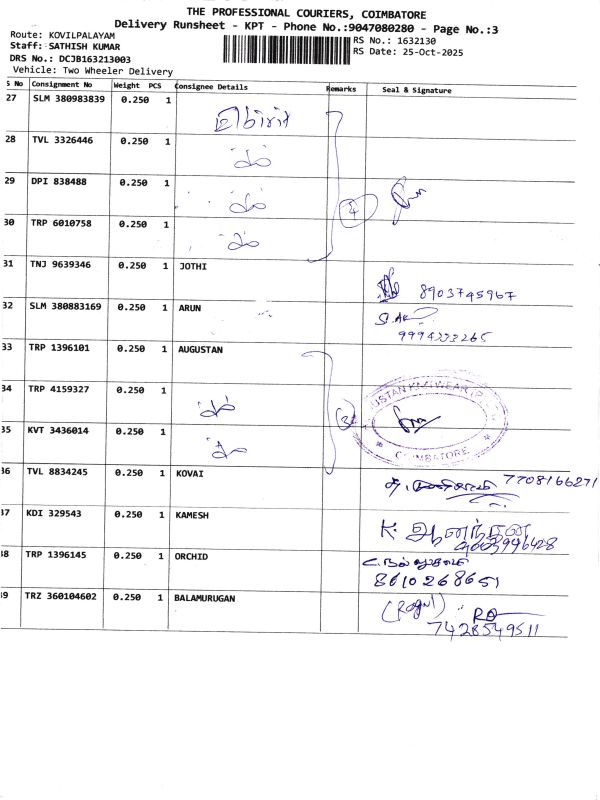 THE PROFESSIONAL COURIERS, COIMBATORE
Delivery Runsheet - KPT - Phone No.:9047080280 - Page No.:3
Route: KOVILPALAYAM
Staff: SATHISH KUMAR
DRS No.: DCJB163213003
Vehicle: Two Wheeler Delivery
RS No.: 1632130
RS Date: 25-Oct-2025
S No Consignment No Weight PCS Consignee Details Remarks Seal & Signature
27 SLM 380983839 0.250 1
28 TVL 3326446 0.250 1
29 DPI 838488 0.250 1
4
30 TRP 6010758 0.250 1
31 TNJ 9639346 0.250 1 JOTHI
8903745967
32 SLM 380883169 0.250 1 ARUN
9994333265
33 TRP 1396101 0.250 1 AUGUSTAN
34 TRP 4159327 0.250 1
3
35 KVT 3436014 0.250 1
COIMBATORE
36 TVL 8834245 0.250 1 KOVAI 7708166271
37 KDI 329543 0.250 1 KAMESH
K. ஆனந்தன்
9003946428
38 TRP 1396145 0.250 1 ORCHID
8610268651
39 TRZ 360104602 0.250 1 BALAMURUGAN
(Ragul)
7428549511